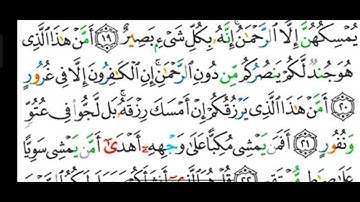 يُمْسِكُهُنَّ إِلَّا الرَّحْمَـٰنُ إِنَّهُ بِكُلِّ شَىْءٍ بَصِيرٌ ﴿١٩﴾ أَمَّنْ هَـٰذَا الَّذِى
هُوَ جُندٌ لَّكُمْ يَنصُرُكُم مِّن دُونِ الرَّحْمَـٰنِ إِنِ الْكَـٰفِرُونَ إِلَّا فِى غُرُورٍ
﴿٢٠﴾ أَمَّنْ هَـٰذَا الَّذِى يَرْزُقُكُمْ إِنْ أَمْسَكَ رِزْقَهُ بَل لَّجُّوا فِى عُتُوٍّ
وَنُفُورٍ ﴿٢١﴾ أَفَمَن يَمْشِى مُكِبًّا عَلَىٰ وَجْهِهِ أَهْدَىٰ أَمَّن يَمْشِى سَوِيًّا